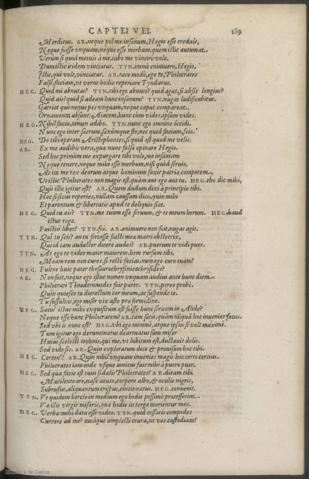 CAPTEIVEI. 189
Mentitus. AR. neque pol me insanum, Hegio esse creduis,
Neque fuisse unquam, neque esse morbum quem istic autumat.
Verùm si quid metuis à me, iube me vinciri: volo,
Dum istic itidem vinciatur. TYN. immò enimuero, Hegio,
Istic, qui volt, vinciatur. AR. tace modò, ego te, Philocrates
False, faciam, ut verus hodie reperiare Tyndarus.
HEG. Quid mi abnutas? TYN. tibi ego abnuto? quid agat, si absis longius?
Quid ais? quid si adeam hunc insanum? TYN. nugas ludificabitur.
Garriet quoi neque pes unquam, neque caput compareat.
Ornamenta absunt, Aiacem, hunc cum vides, ipsum vides.
HEG. Nihil facio, tamen adibo. TYN. nunc ego omnino occido.
Nunc ego inter sacrum saxúmque sto, nec quid faciam, scio.
HEG. Do tibi operam, Aristophontes, si quid est quod me velis.
AR. Ex me audibis vera, quæ nunc falsa opinare Hegio.
Sed hoc primùm me expurgare tibi volo, me insaniam
Neque tenere, neque mihi esse morbum, nisi quòd seruio.
At ita me rex deorum atque hominum faxit patriæ compotem,
Vt istic Philocrates non magis est, quàm aut ego aut tu. HEG. eho dic mihi,
Quis illic igitur est? AR. Quem dudum dixi à principio tibi.
Hoc si secus reperies, nullam caussam dico, quin mihi
Et parentum & libertatis apud te deliquio siet.
HEG. Quid tu ais? TYN. me tuum esse seruum, & te meum herum. HEG. haud
istuc rogo.
Fuistin liber? TYN. fui. AR. enimuero non fuit, nugas agit.
TYN. Qui tu scis? an tu fortasse fuisti meæ matri obstetrix,
Quid tam audacter dicere audes? AR. puerum te vidi puer.
TYN. At ego te video maior maiorem. hem rursum tibi,
Meam rem non cures, si rectè facias. num ego curo tuam?
HEG. Fuitne huic pater thesaurochrysonicochrysides?
AR. Non fuit, neque ego istuc nomen unquam audiui ante hunc diem.
Philocrati Theodoromedes fuit pater. TYN. pereo probè.
Quin quiescis tu dierectum cor meum, ac suspende te.
Tu sussultas, ego miser vix asto præ formidine.
HEG. Satin' istuc mihi exquisitum est fuisse hunc seruum in Alide?
Neque esse hunc Philocratem? AR. tam satis, quàm nūquā hoc inuenies secus.
Sed ubi is nunc est? HEG. ubi ego minimè, atque ipsus se volt maximè.
Tum igitur ego deruncinatus deartuatus sum miser
Huius scelesti technis, qui me, ut lubitum est, ductauit dolis.
Sed vide sis. AR. Quin exploratum dico & prouisum hoc tibi.
HEG. Certón'? AR. Quin nihil unquam inuenies magis hoc certo certius.
Philocrates iam inde usque amicus fuit mihi à puero puer.
HEG. Sed qua facie est tuus sodalis Philocrates? AR. dicam tibi.
Macilento ore, naso acuto, corpore albo, & oculis nigris,
Subrufus, aliquantum crispus, cincinnatus. HEG. conuenit.
TYN. Vt quidem hercle in medium ego hodie pessimè processerim.
Væ illis virgis miseris, quæ hodie in tergo morientur meo.
HEG. Verba mihi data esse video. TYN. quid cessatis compedes
Currere ad me? meáque amplecti crura, ut vos custodiam?